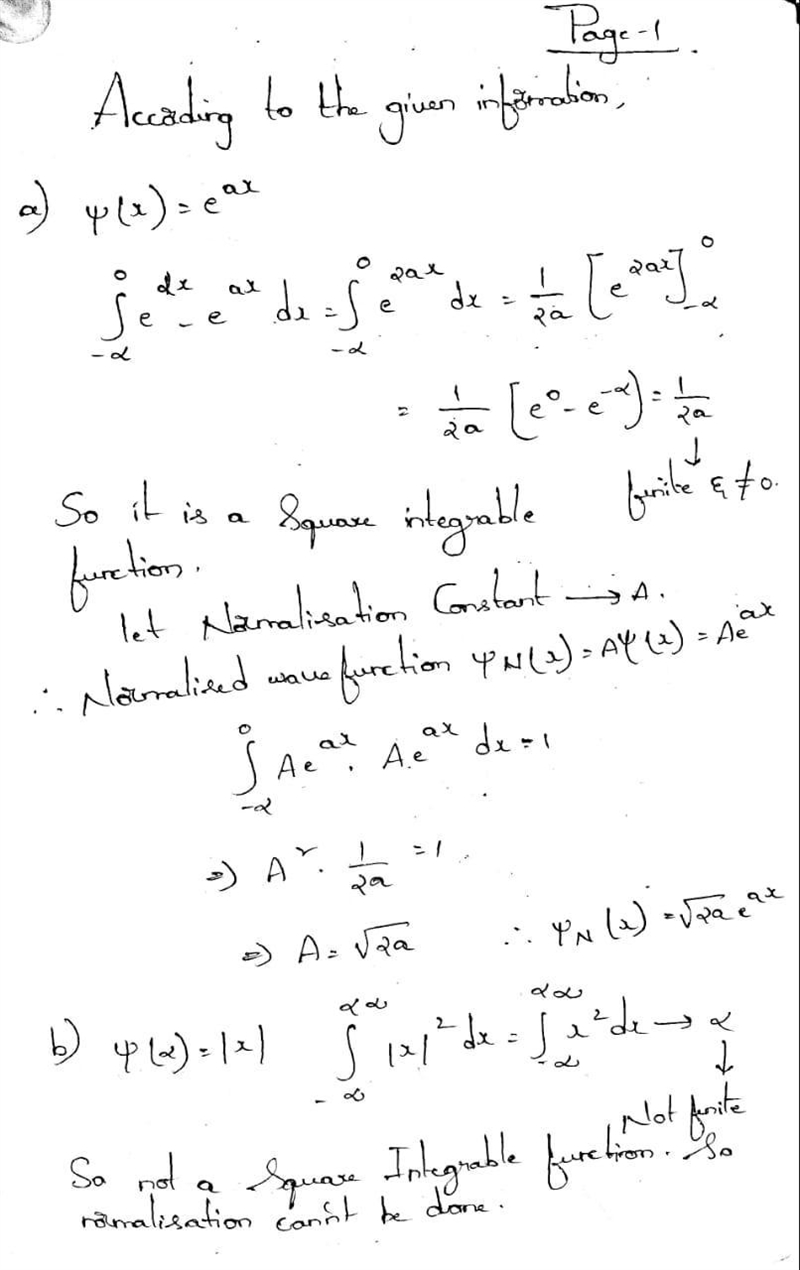 Page-1
According to the given information,
a) ψ(x) = e^{ax}
∫_{-α}^{0} e^{dx} - e^{ax} dx = ∫_{-α}^{0} e^{2ax} dx = 1/2a [e^{2ax}]_{-α}^{0}
= 1/2a [e^0 - e^{-α}) = 1/2a
↓
So it is a Square integrable finite & ≠ 0.
function.
let Normalisation Constant → A.
∴ Normalised wave function ψ_N(x) = Aψ(x) = Ae^{ax}
∫_{-α}^{0} Ae^{ax} . A.e^{ax} dx = 1
⇒ A^2 . 1/2a = 1
⇒ A = √2a ∴ ψ_N(x) = √2a e^{ax}
b) ψ(x) = |x| ∫_{-∞}^{α∞} |x|^2 dx = ∫_{-∞}^{α∞} x^2 dx → α
↓
Not finite
So not a Square Integrable function. So
normalisation can't be done.